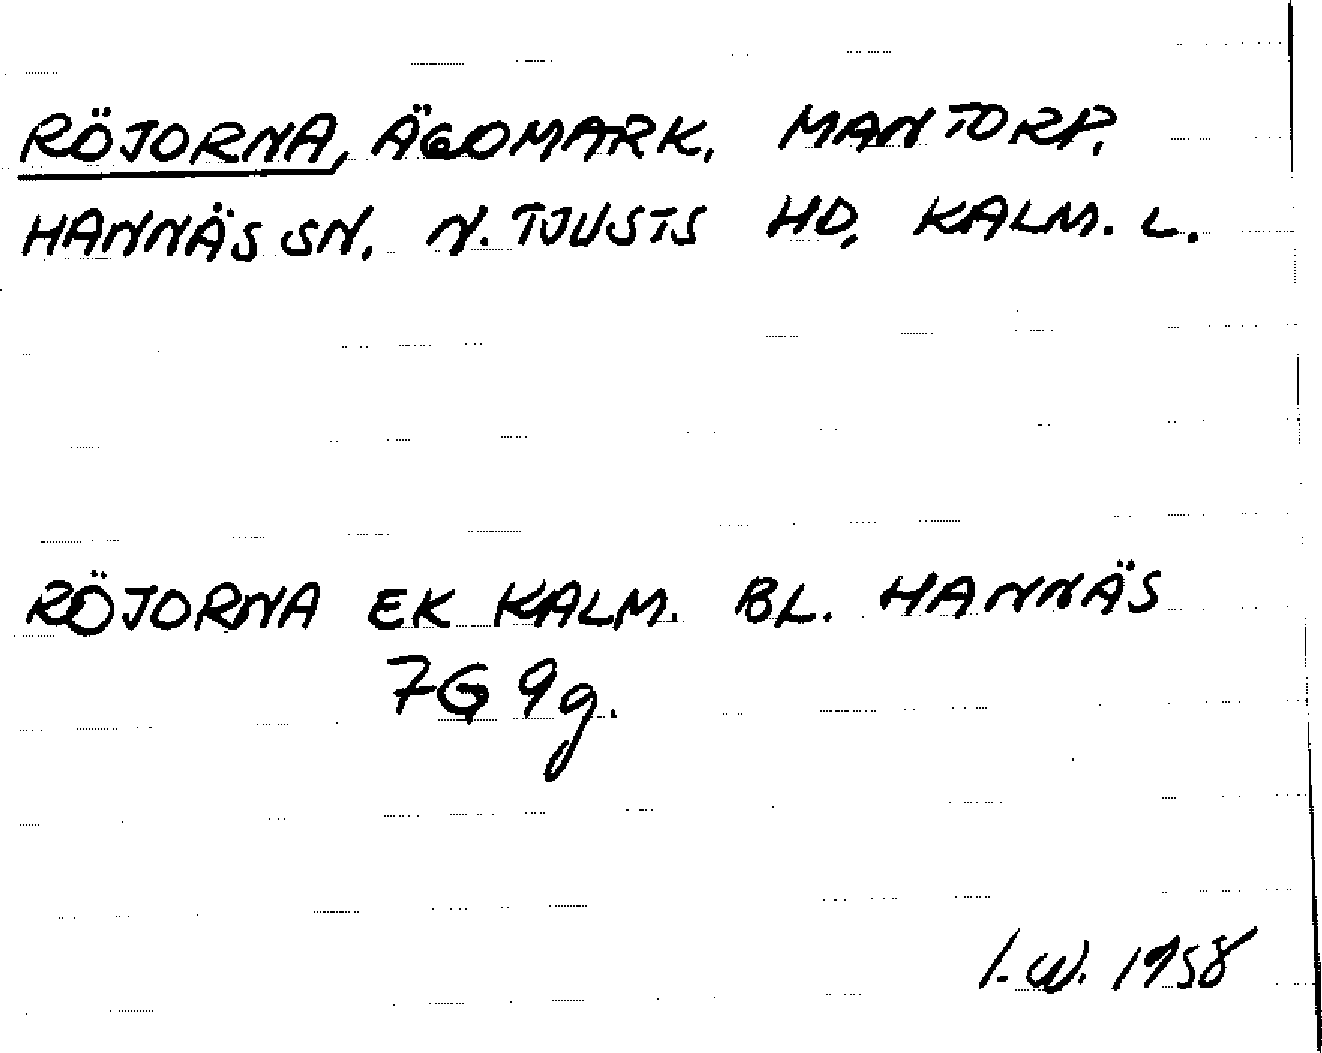 RÖJORNA, ÄGOMARK. MANTORP,
HANNÄS SN. N. TJUSTS HD, KALM. L.
RÖJORNA EK KALM. BL. HANNÄS
7G 9g.
I.W. 1958